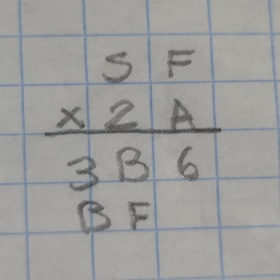 S F
x 2 A
3 B 6
B F